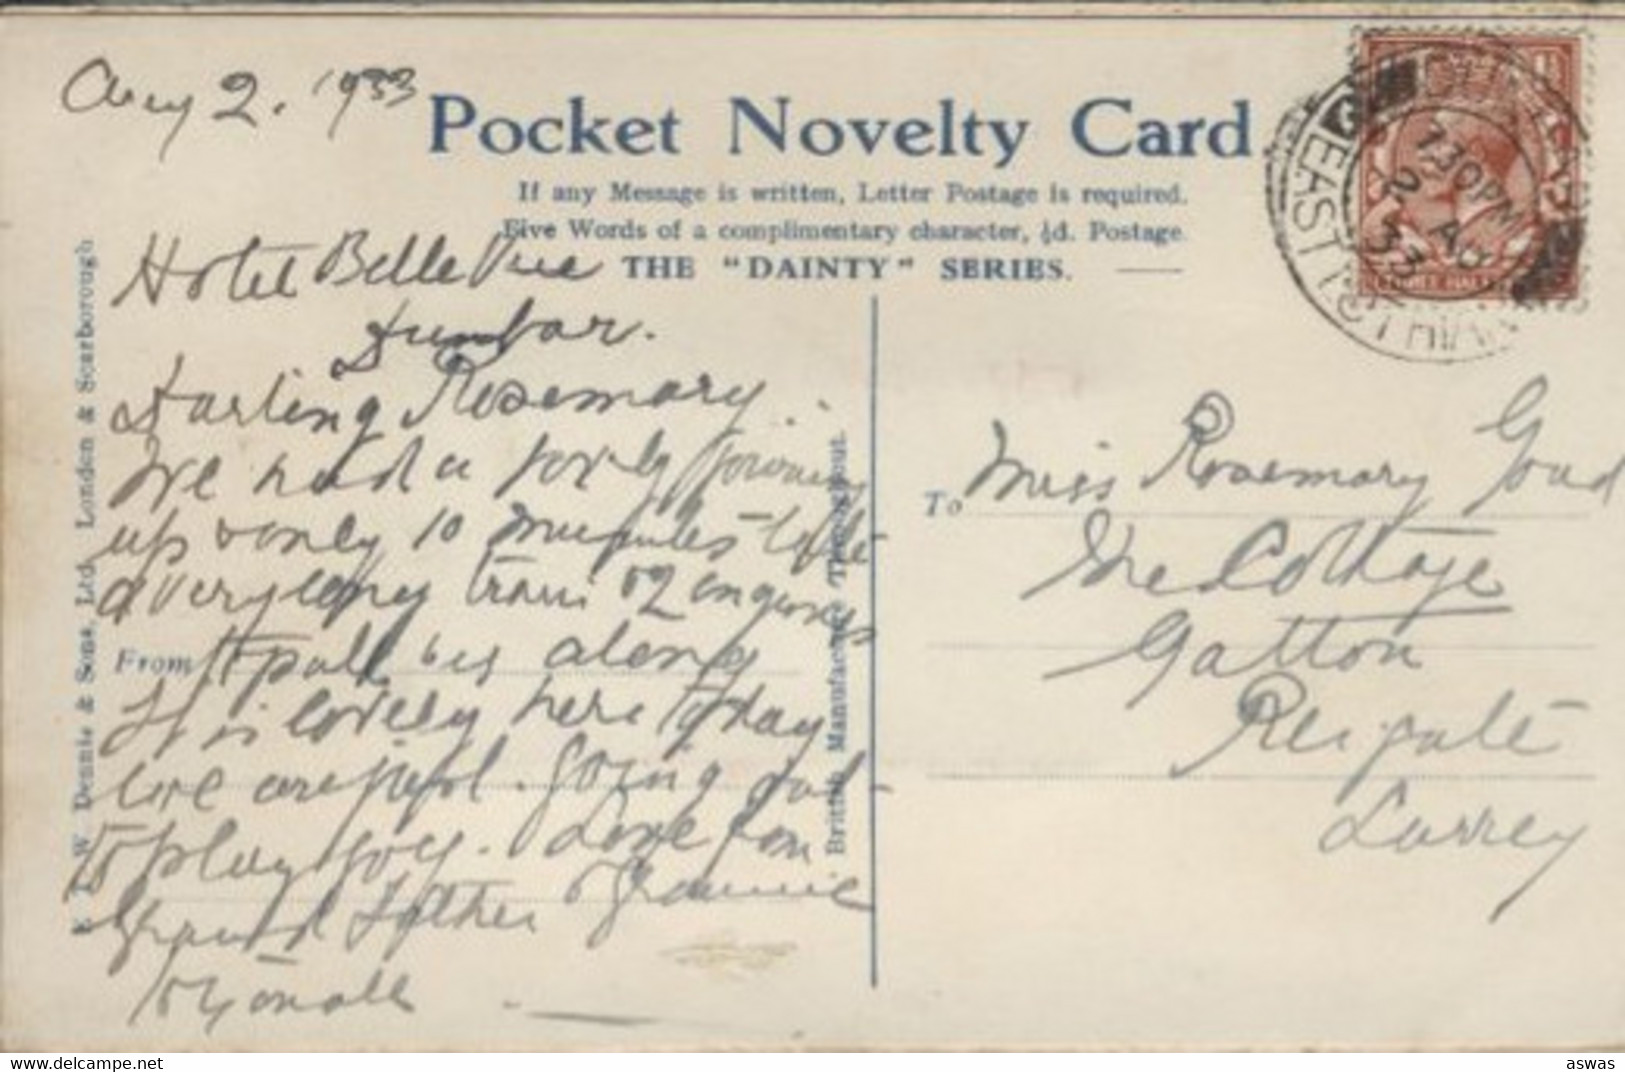 Aug 2. 1933
Pocket Novelty Card
If any Message is written, Letter Postage is required.
Five Words of a complimentary character, ½d. Postage.
THE "DAINTY" SERIES.
Hotel Belle Vue
Dunbar.
Darling Rosemary.
We had a lovely journey
up & only 10 minutes late
a very long train & 2 engines
From
to pull us along
It is lovely here today
we are just going out
to play golf. Love from
Grand Father & Grannie
E. T. W. Dennis & Sons, Ltd. London & Scarborough
British Manufacture Throughout.
To Miss Rosemary
The Cottage
Gatton
Reigate
Surrey
7.30PM
2 AU
33
EAST LOTHIAN
aswas